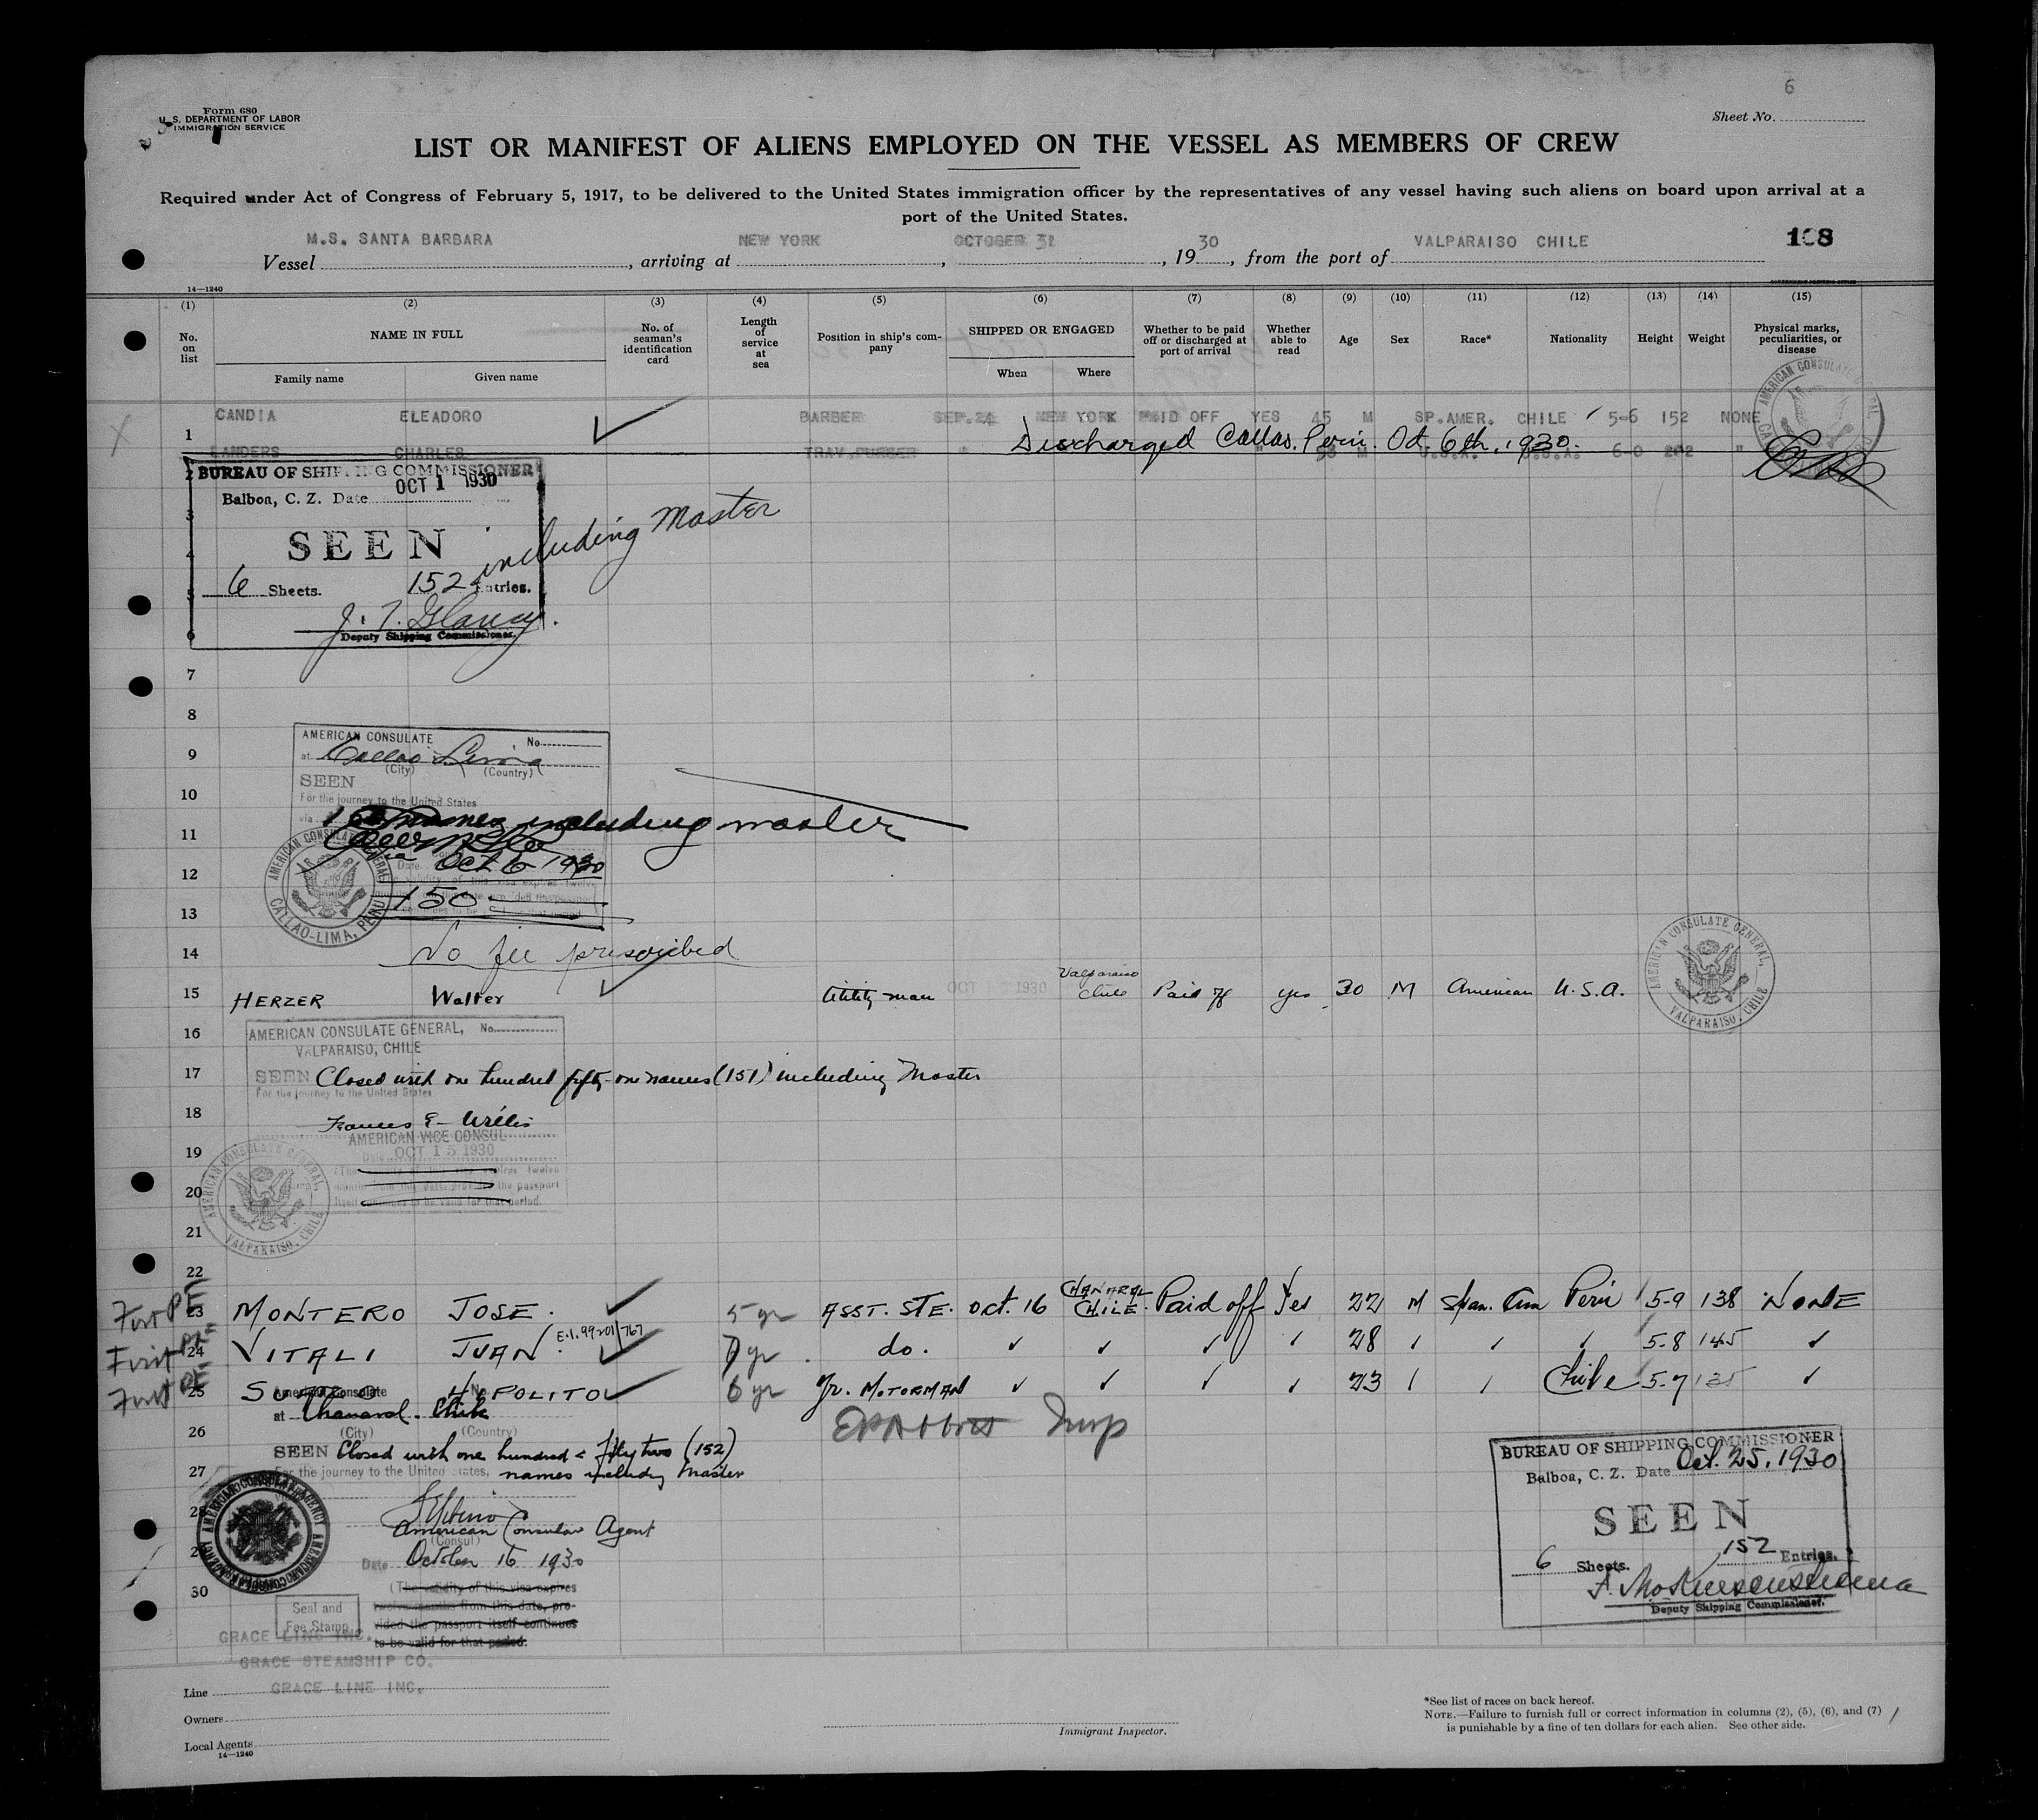 6
Form 680
U. S. DEPARTMENT OF LABOR
IMMIGRATION SERVICE
Sheet No.
LIST OR MANIFEST OF ALIENS EMPLOYED ON THE VESSEL AS MEMBERS OF CREW
Required under Act of Congress of February 5, 1917, to be delivered to the United States immigration officer by the representatives of any vessel having such aliens on board upon arrival at a
port of the United States.
Vessel M.S. SANTA BARBARA, arriving at NEW YORK, OCTOBER 31, 1930, from the port of VALPARAISO CHILE
168
14—1240
(1) (2) (3) (4) (5) (6) (7) (8) (9) (10) (11) (12) (13) (14) (15)
No. on list
NAME IN FULL
Family name Given name
No. of seaman's identification card
Length of service at sea
Position in ship's company
SHIPPED OR ENGAGED
When Where
Whether to be paid off or discharged at port of arrival
Whether able to read
Age
Sex
Race*
Nationality
Height
Weight
Physical marks, peculiarities, or disease
1 CANDIA ELEADORO BARBER SEP.24 NEW YORK PAID OFF YES 45 M SP.AMER. CHILE 5-6 152 NONE
2 LANDERS CHARLES TRAV.PURSER " " M U.S.A. U.S.A. 6-0 202 "
Discharged Callao. Peru. Oct. 6th, 1930.
BUREAU OF SHIPPING COMMISSIONER
Balboa, C. Z. Date OCT 1 1930
SEEN
6 Sheets. 152 Entries. including Master
Deputy Shipping Commissioner.
3
4
5
6
7
8
9
10
11
12
13
14
AMERICAN CONSULATE No.
at Callao Lima
(City) (Country)
SEEN
For the journey to the United States
via
names including master
Date Oct 6 1930
150
AMERICAN CONSULATE GENERAL
CALLAO-LIMA, PERU
No fee prescribed
15 HERZER Walter Utility man OCT 1930 Valparaiso Chile Paid off yes 30 M American U.S.A.
AMERICAN CONSULATE GENERAL,
VALPARAISO, CHILE
16
17
18
19
20
21
22
AMERICAN CONSULATE GENERAL, No.
VALPARAISO, CHILE
SEEN Closed with one hundred fifty-one names (151) including Master
For the journey to the United States
Frances E. Willis
AMERICAN VICE CONSUL
Date OCT 15 1930
AMERICAN CONSULATE GENERAL,
VALPARAISO, CHILE
First PE 23 MONTERO JOSE. 5 yr ASST. STE. Oct. 16 CHANARAL CHILE. Paid off Yes 22 M Span. Am Peru 5-9 138 NONE
First PE 24 VITALI JUAN. E.1.99201/767 7 yr. do. 28 5-8 145
First PE 25 HIPOLITO 6 yr Jr. MOTORMAN 23 Chile 5-7 135
26
27
28
29
30
American Consulate No.
at Chanaral. Chile
(City) (Country)
SEEN Closed with one hundred & fifty two (152)
For the journey to the United States, names including Master
American Consular Agent
(Consul)
Date October 16 1930
(The validity of this visa expires
twelve months from this date, pro-
vided the passport itself continues
to be valid for that period.
Seal and
Fee Stamp
Insp
BUREAU OF SHIPPING COMMISSIONER
Balboa, C. Z. Date Oct. 25, 1930
SEEN
6 Sheets. 152 Entries.
Deputy Shipping Commissioner.
GRACE LINE INC.
GRACE STEAMSHIP CO.
Line GRACE LINE INC.
Owners
Local Agents
14—1240
Immigrant Inspector.
*See list of races on back hereof.
NOTE.—Failure to furnish full or correct information in columns (2), (5), (6), and (7)
is punishable by a fine of ten dollars for each alien. See other side.